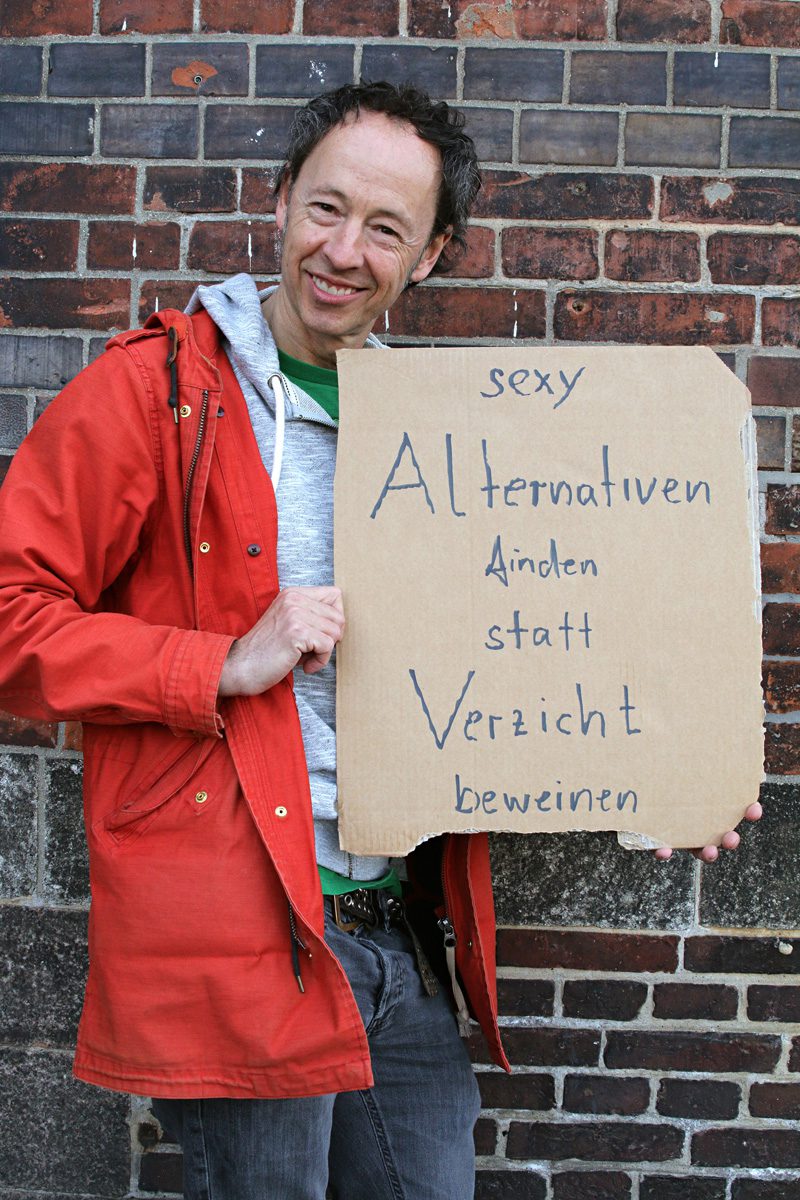 sexy
Alternativen
finden
statt
Verzicht
beweinen